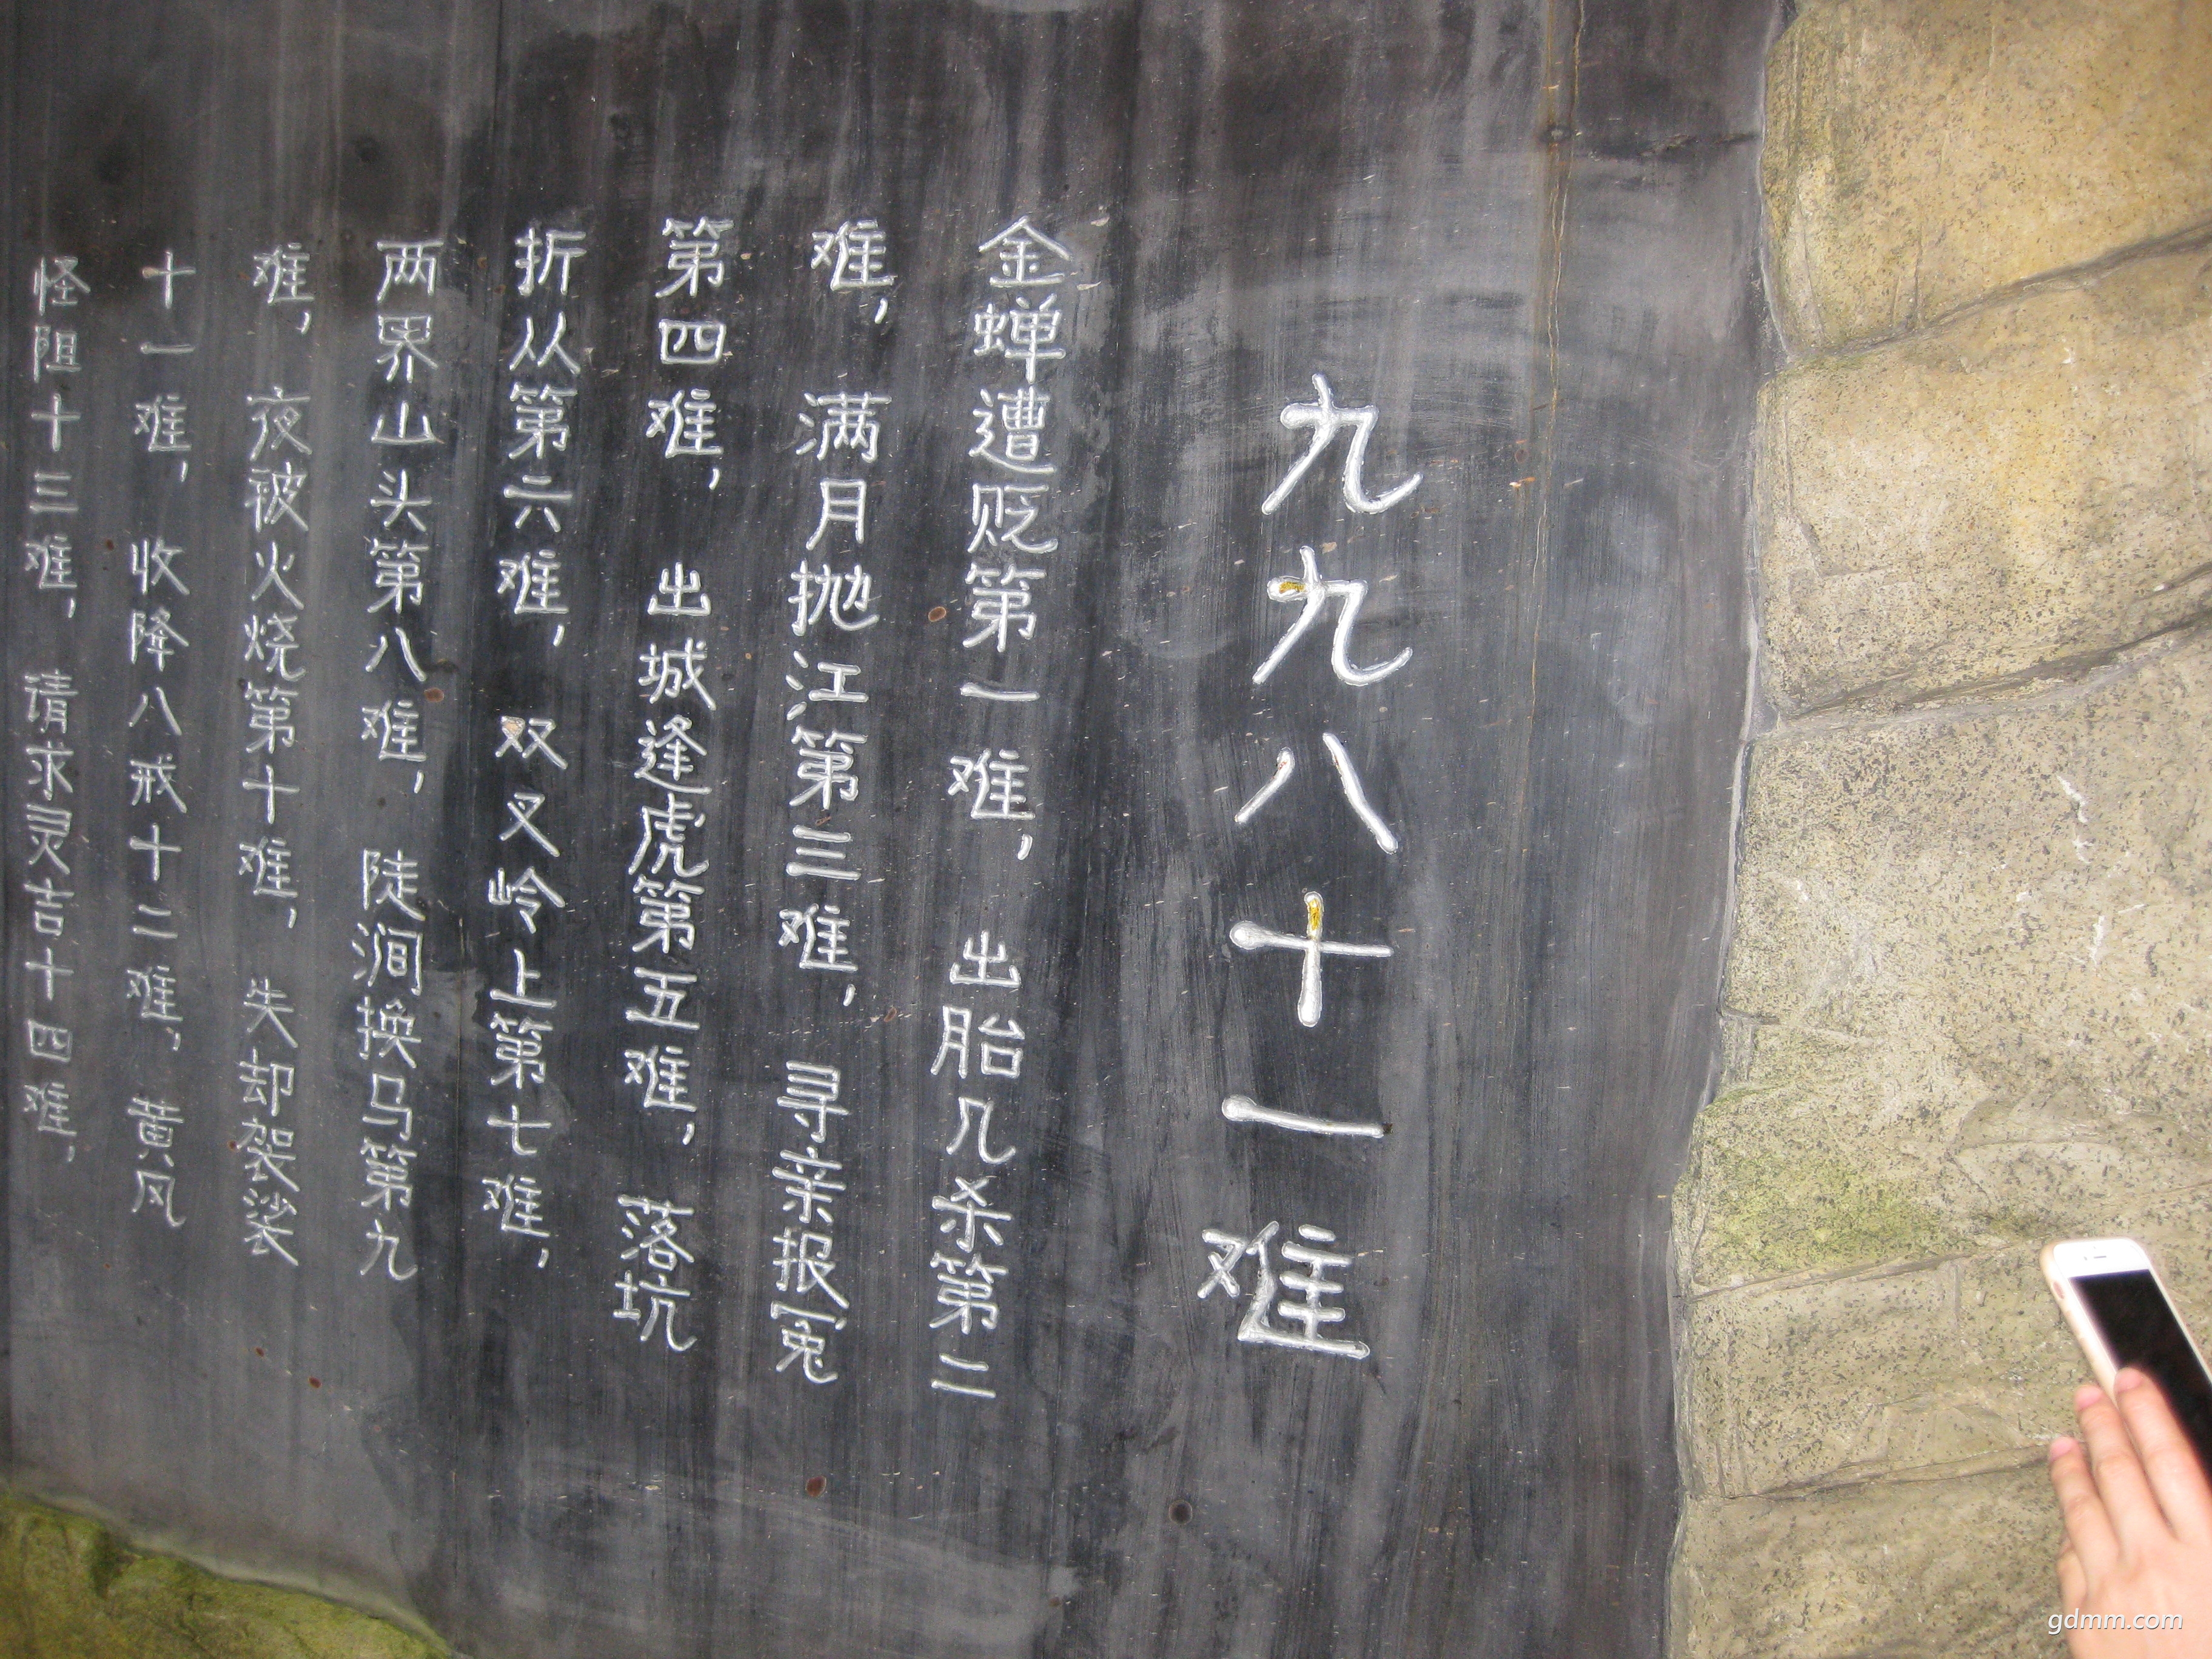 九九八十一难
金蝉遭贬第一难，出胎几杀第二
难，满月抛江第三难，寻亲报冤
第四难，出城逢虎第五难，落坑
折从第六难，双叉岭上第七难，
两界山头第八难，陡涧换马第九
难，夜被火烧第十难，失却袈裟
十一难，收降八戒十二难，黄风
怪阻十三难，请求灵吉十四难，
gdmm.com